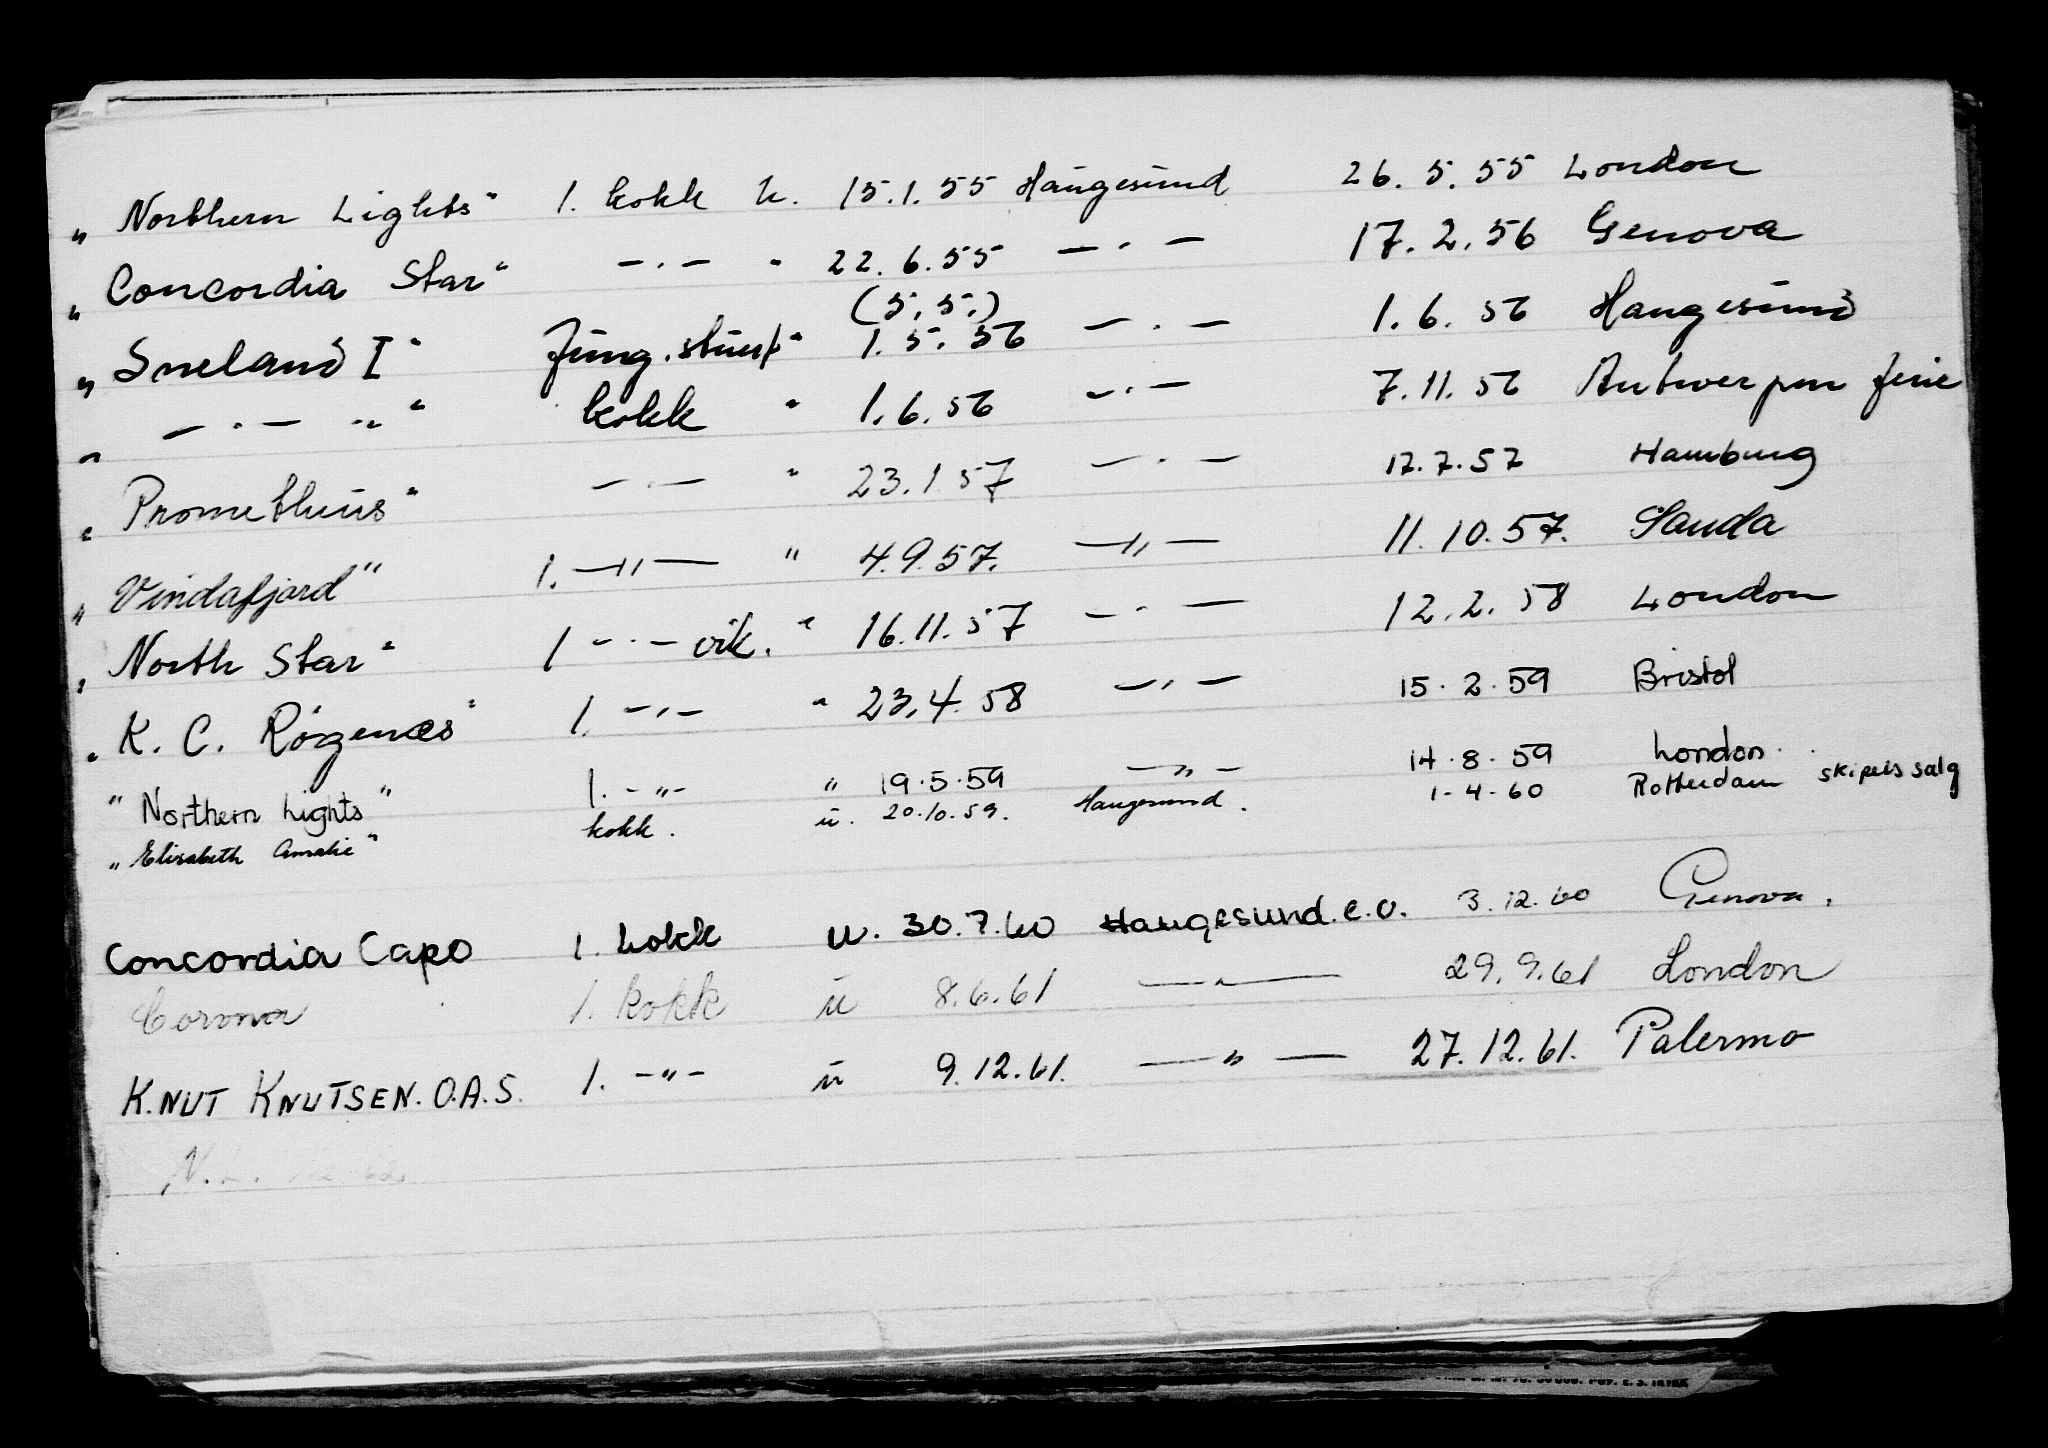 „ Northern Lights" 1. kokk u. 15.1.55 Haugesund 26.5.55 London
„ Concordia Star" — · — " 22.6.55 — · — 17.2.56 Genova
(5.5.)
„ Sneland I" Jung. stuert " 1.5.56 — · — 1.6.56 Haugesund
„ — · — " " kokk " 1.6.56 — · — 7.11.56 Antwerpen ferie
„ Prometheus" — · — " 23.1.57 — · — 17.7.57 Hamburg
„ Vindafjord" 1. — " — " 4.9.57. — " — 11.10.57. Sauda
„ North Star" 1 — · — vik. " 16.11.57 — · — 12.2.58 London
„ K. C. Rogenæs" 1. — " — " 23.4.58 — " — 15.2.59 Bristol
" Northern Lights" 1. - " - " 19.5.59 — " — 14.8.59 London.
„ Elisabeth Amalie" kokk. u. 20.10.59. Haugesund. 1-4-60 Rotterdam skipets salg
Concordia Capo 1. kokk u. 30.7.60 Haugesund.e.o. 3.12.60 Genova.
Corona 1. kokk u 8.6.61 — " — 29.9.61 London
K.NUT KNUTSEN.O.A.S. 1. - " - u 9.12.61. — " — 27.12.61. Palermo